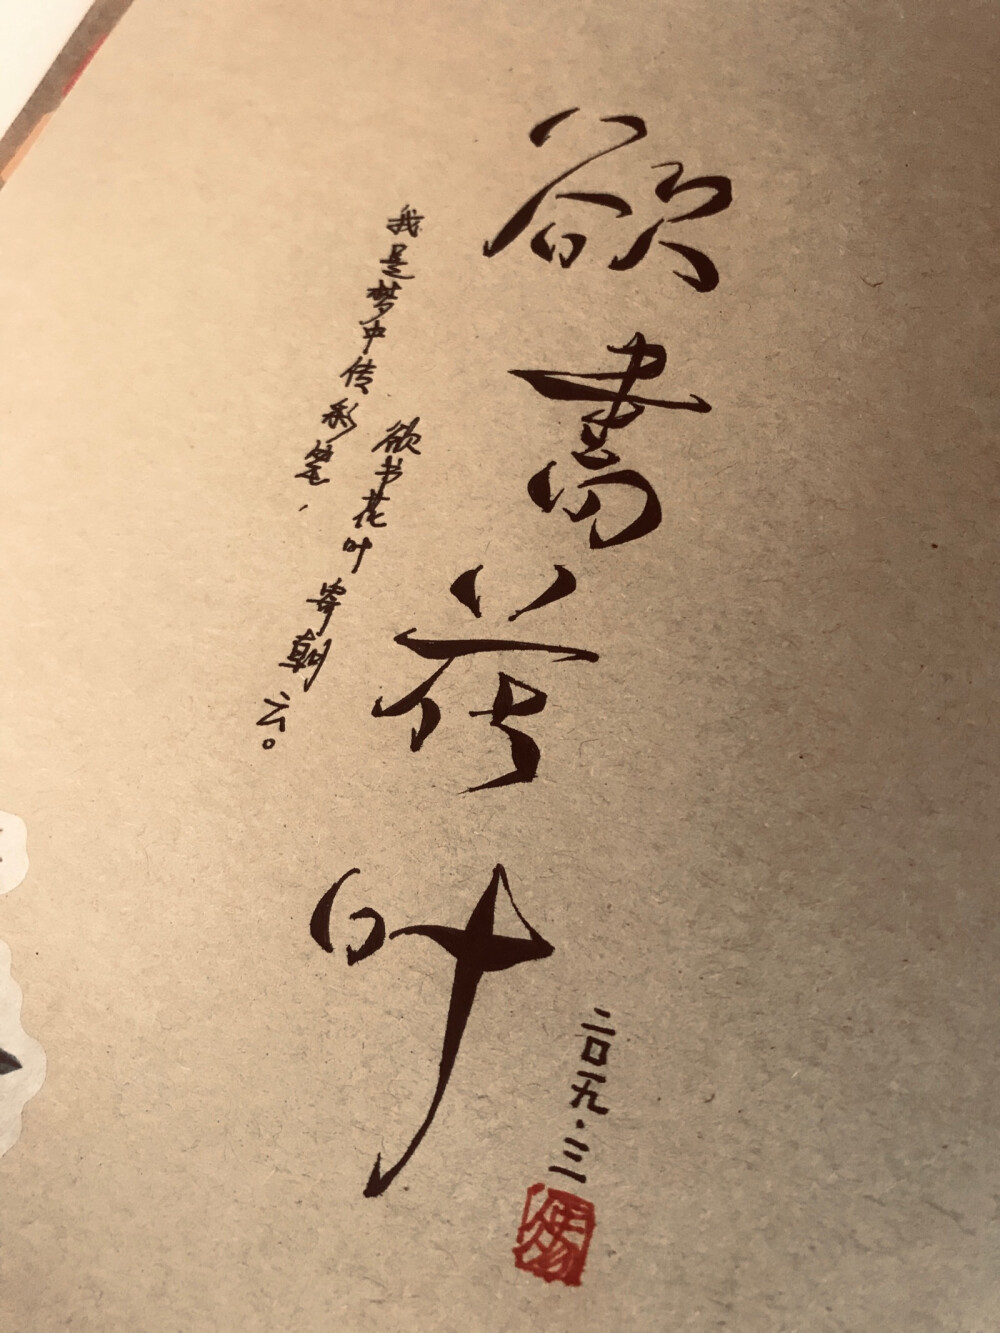 欲書花叶
我是梦中传彩笔，
欲书花叶寄朝云。
二〇一九·三